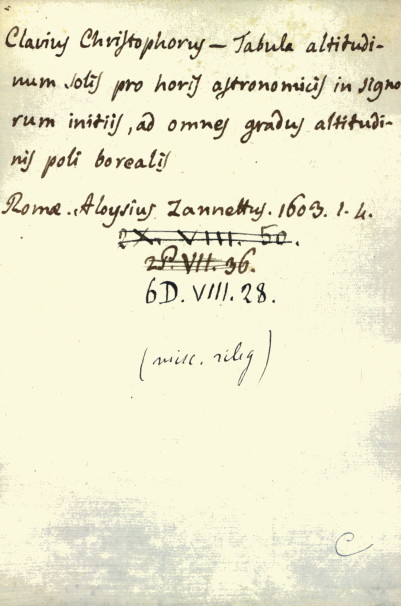 Clavius Christophorus — Tabula altitudi-
num solis pro horis astronomicis in signo
rum initiis, ad omnes gradus altitudi-
nis poli borealis
Romæ. Aloysius Zannettus. 1603. 1-4.
2X. VIII. 50.
2P. VII. 36.
6D. VIII. 28.
(misc. rileg)
C